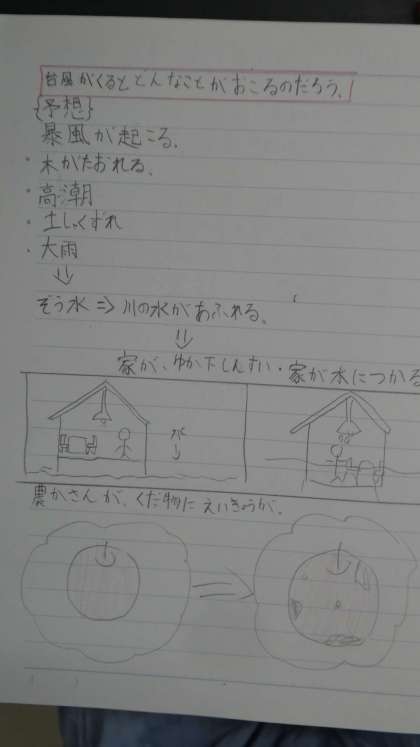 台風がくるとどんなことがおこるのだろう。
{予想}
暴風が起こる。
・木がたおれる。
・高潮
・土しゃくずれ
・大雨
⇓
ぞう水⇒川の水があふれる。
⇓
家が、ゆか下しんすい・家が水につかる
水
↓
農かさんが、くだ物にえいきょうが。